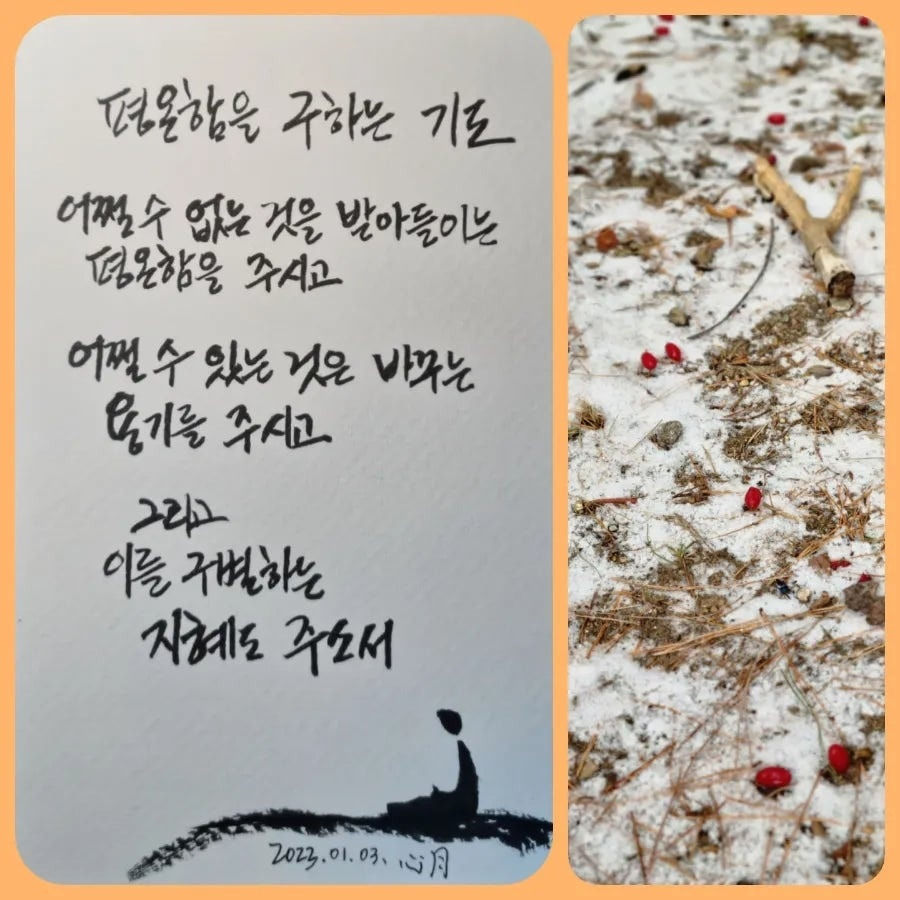 평온함을 구하는 기도
어쩔 수 없는 것을 받아들이는
평온함을 주시고
어쩔 수 있는 것은 바꾸는
용기를 주시고
그리고
이를 구별하는
지혜도 주소서
2023.01.03. 心月